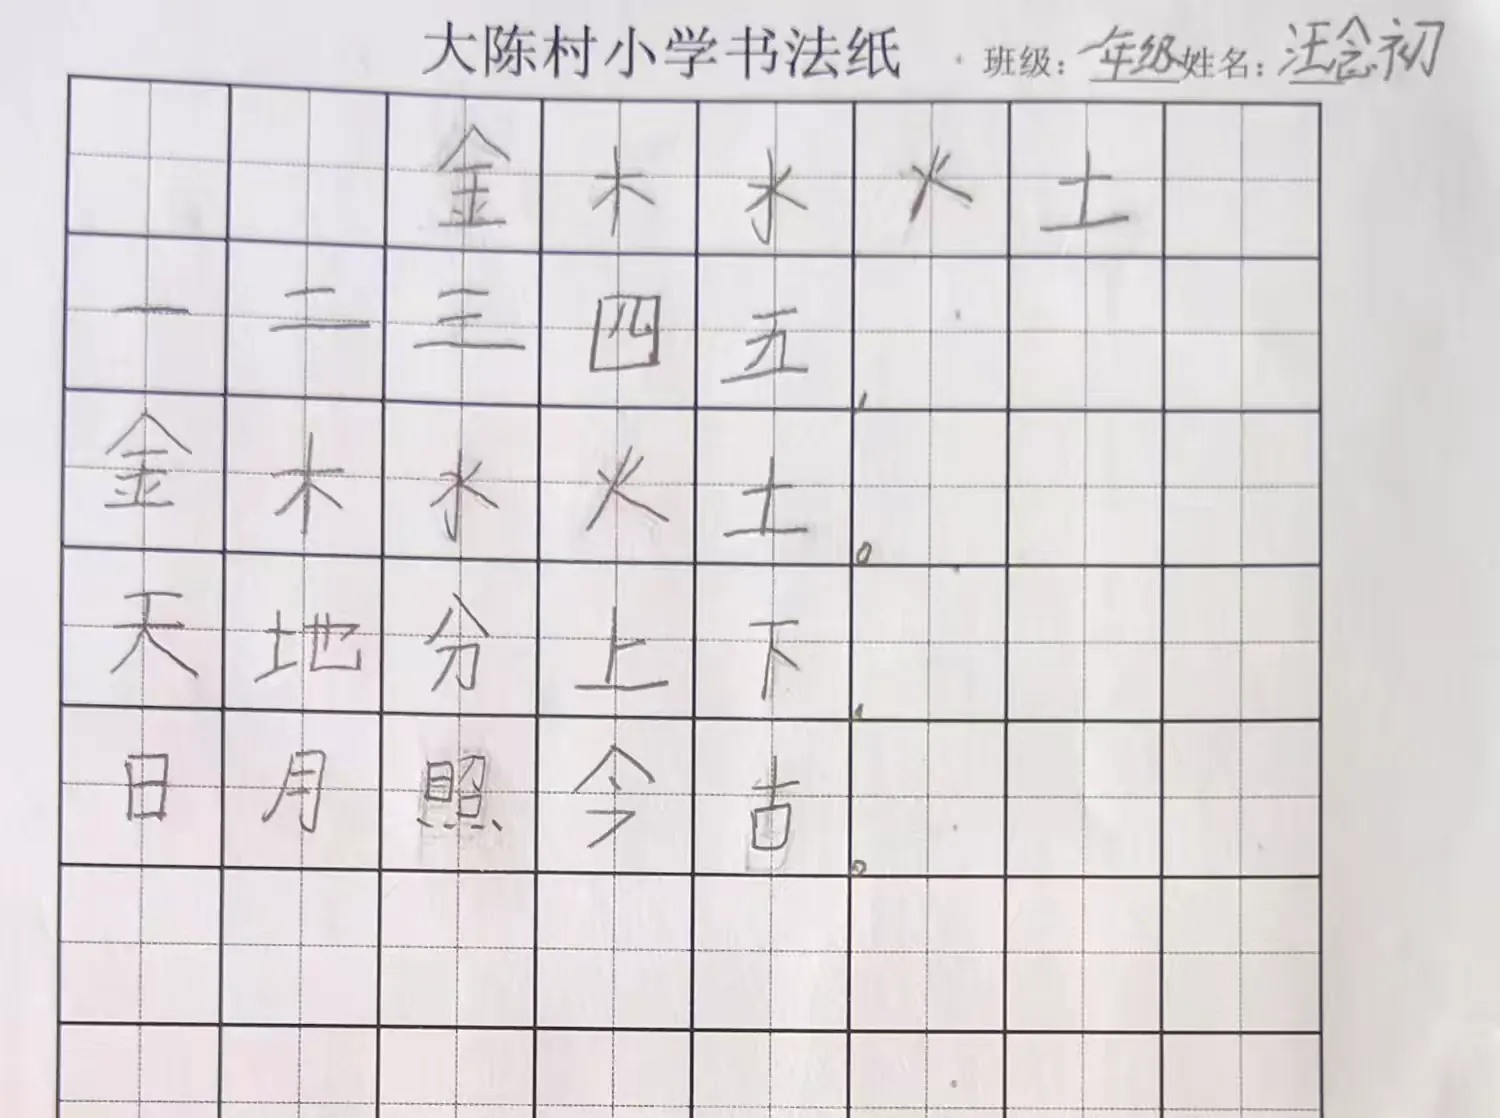 大陈村小学书法纸 班级：一年级 姓名：汪念初
金木水火土
一二三四五，
金木水火土。
天地分上下，
日月照今古。